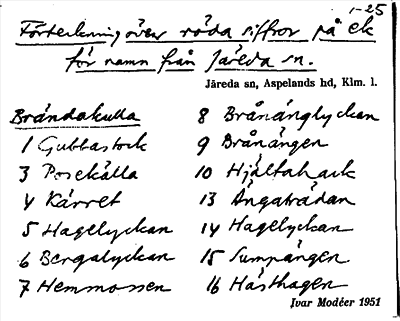 1-25
Förteckning över röda siffror på ek
för namn från Järeda sn.
Järeda sn, Aspelands hd, Klm. l.
Brändakulla
1 Gubbastock
3 Posekälla
4 Kärret
5 Hagelyckan
6 Bergalyckan
7 Hemmossen
8 Brånänglyckan
9 Brånängen
10 Hjältahack
13 Ängaträdan
14 Hagelyckan
15 Sumpängen
16 Hästhagen
Ivar Modéer 1951